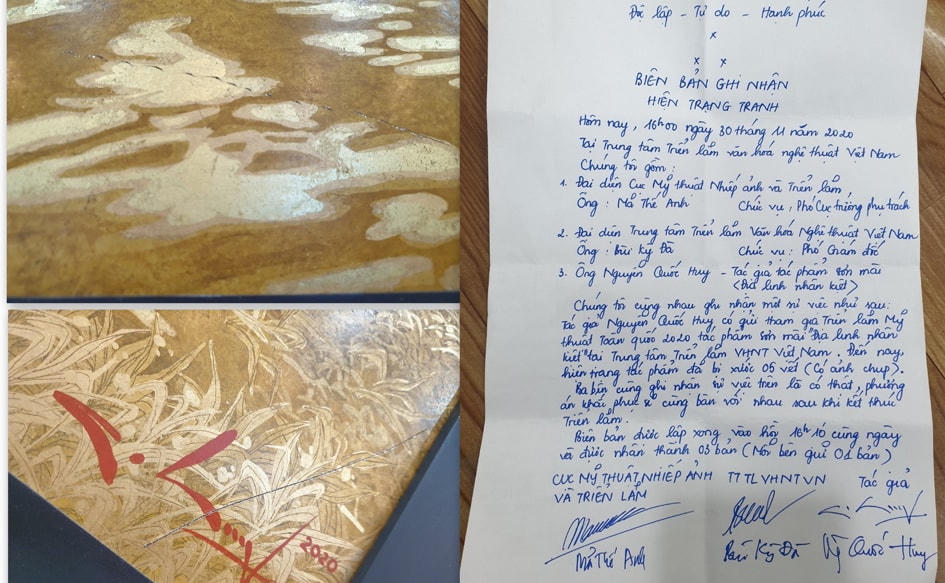 2020
Độc lập - Tự do - Hạnh phúc
x
x x
BIÊN BẢN GHI NHẬN
HIỆN TRẠNG TRANH
Hôm nay, 16h00 ngày 30 tháng 11 năm 2020
Tại Trung tâm Triển lãm văn hóa nghệ thuật Việt Nam
Chúng tôi gồm:
1. Đại diện Cục Mỹ thuật Nhiếp ảnh và Triển lãm
Ông: Mã Thế Anh Chức vụ: Phó Cục trưởng phụ trách
2. Đại diện Trung tâm Triển lãm Văn hóa Nghệ thuật Việt Nam
Ông: Bùi Kỳ Đà Chức vụ: Phó Giám đốc
3. Ông Nguyễn Quốc Huy - Tác giả tác phẩm sơn mài
<Địa linh nhân kiệt>
Chúng tôi cùng nhau ghi nhận một sự việc như sau:
Tác giả Nguyễn Quốc Huy có gửi tham gia Triển lãm Mỹ
thuật Toàn quốc 2020 tác phẩm sơn mài "Địa linh nhân
kiệt" tại Trung tâm Triển lãm VHNT Việt Nam. Đến nay,
hiện trạng tác phẩm đã bị xước 05 vết (Có ảnh chụp).
Ba bên cùng ghi nhận sự việc trên là có thật, phương
án khắc phục sẽ cùng bàn với nhau sau khi kết thúc
Triển lãm.
Biên bản được lập xong vào hồi 16h10 cùng ngày
và được nhân thành 03 bản (Mỗi bên giữ 01 bản)
CỤC MỸ THUẬT NHIẾP ẢNH TTTLVHNTVN Tác giả
VÀ TRIỂN LÃM
Mã Thế Anh Bùi Kỳ Đà Ng Quốc Huy